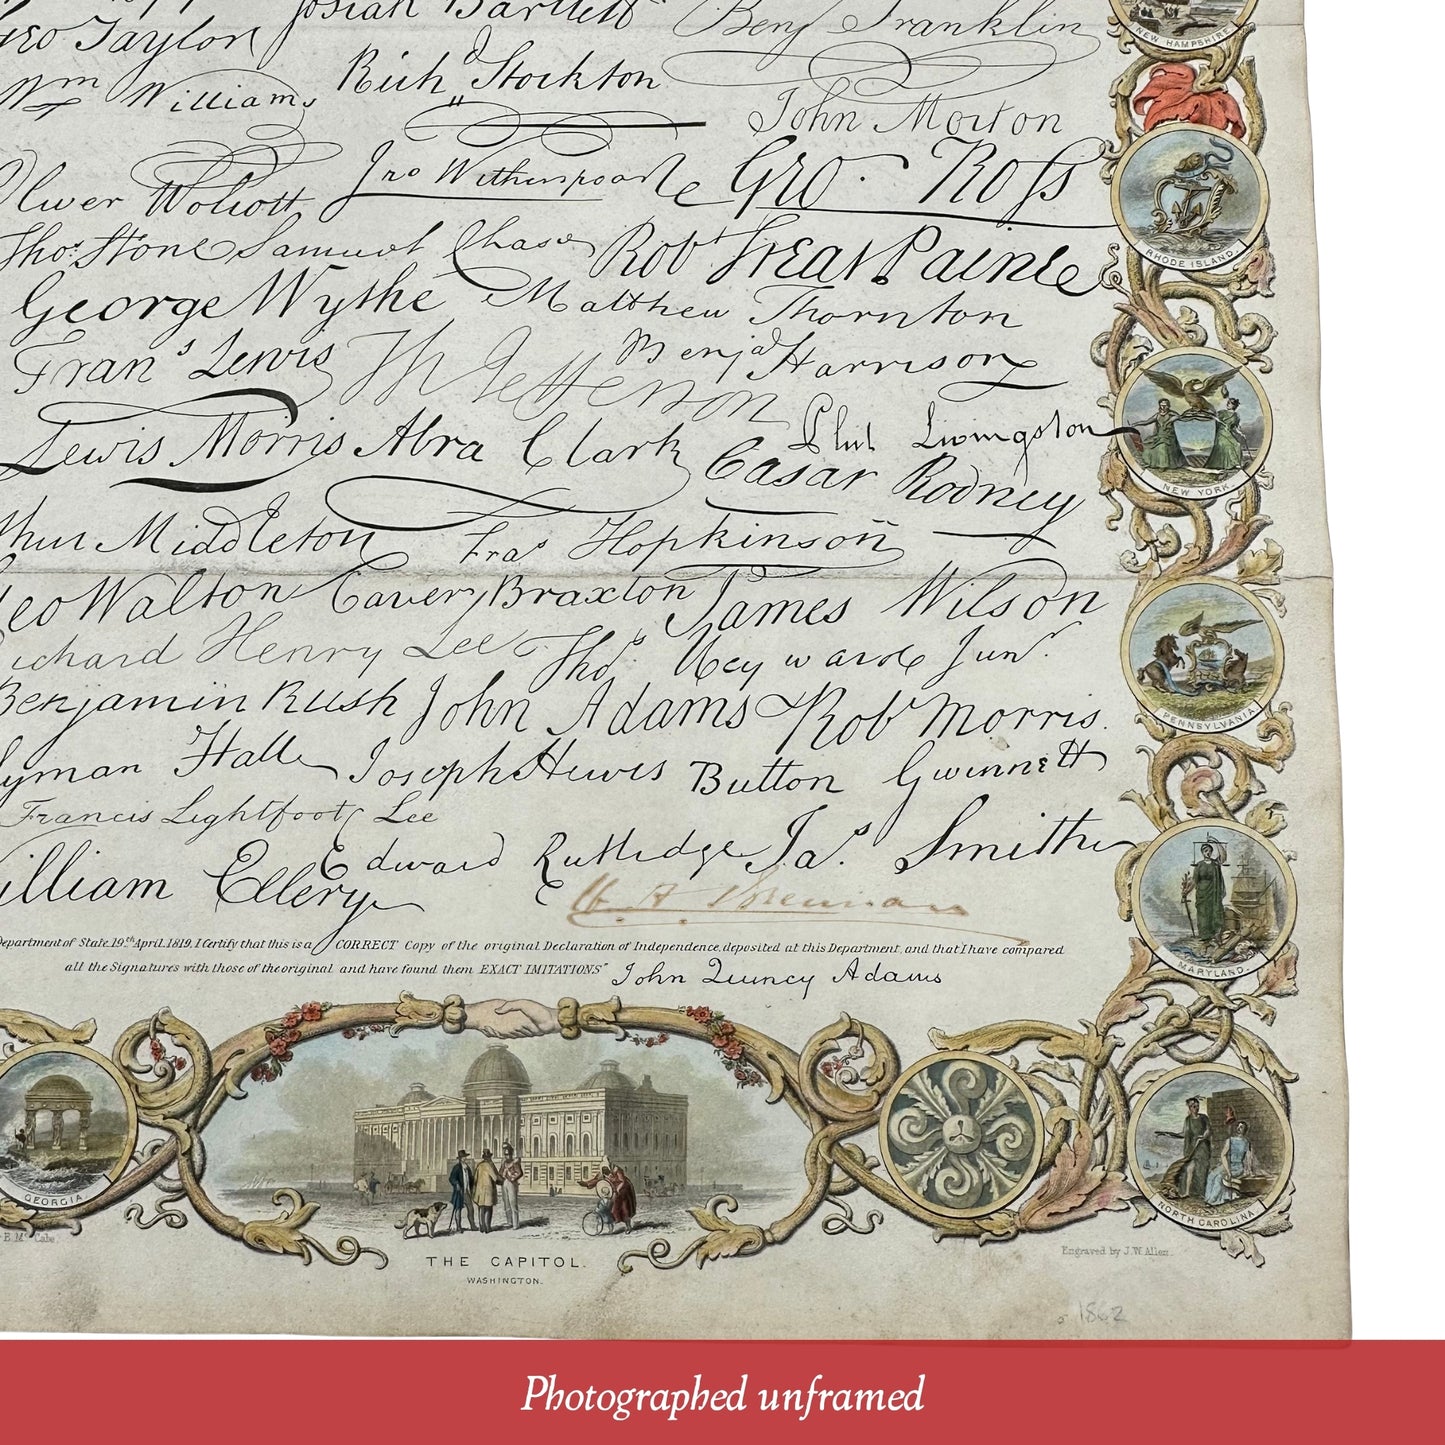 Josiah Bartlett
Benj Franklin
NEW HAMPSHIRE
Geo Taylor
Richd Stockton
Wm Williams
John Morton
Jno Witherspoon
Geo. Ross
Oliver Wolcott
RHODE ISLAND.
Thos. Stone Samuel Chase Robt Treat Paine
George Wythe Matthew Thornton
Frans Lewis Th Jefferson Benja Harrison
Lewis Morris Abra Clark Phil Livingston
Cæsar Rodney
NEW YORK
Middleton Fras Hopkinson
Geo Walton Carter Braxton James Wilson
Richard Henry Lee Thos Heyward Junr.
PENNSYLVANIA
Benjamin Rush John Adams Robt Morris.
Lyman Hall Joseph Hewes Button Gwinnett
Francis Lightfoot Lee
William Ellery Edward Rutledge Jas. Smith
MARYLAND.
Department of State 19th April 1819. I Certify that this is a CORRECT Copy of the original Declaration of Independence, deposited at this Department, and that I have compared
all the Signatures with those of the original and have found them EXACT IMITATIONS" John Quincy Adams
GEORGIA.
THE CAPITOL.
WASHINGTON.
NORTH CAROLINA
E. Mc Cabe.
Engraved by J.W. Allen.
1862
Photographed unframed